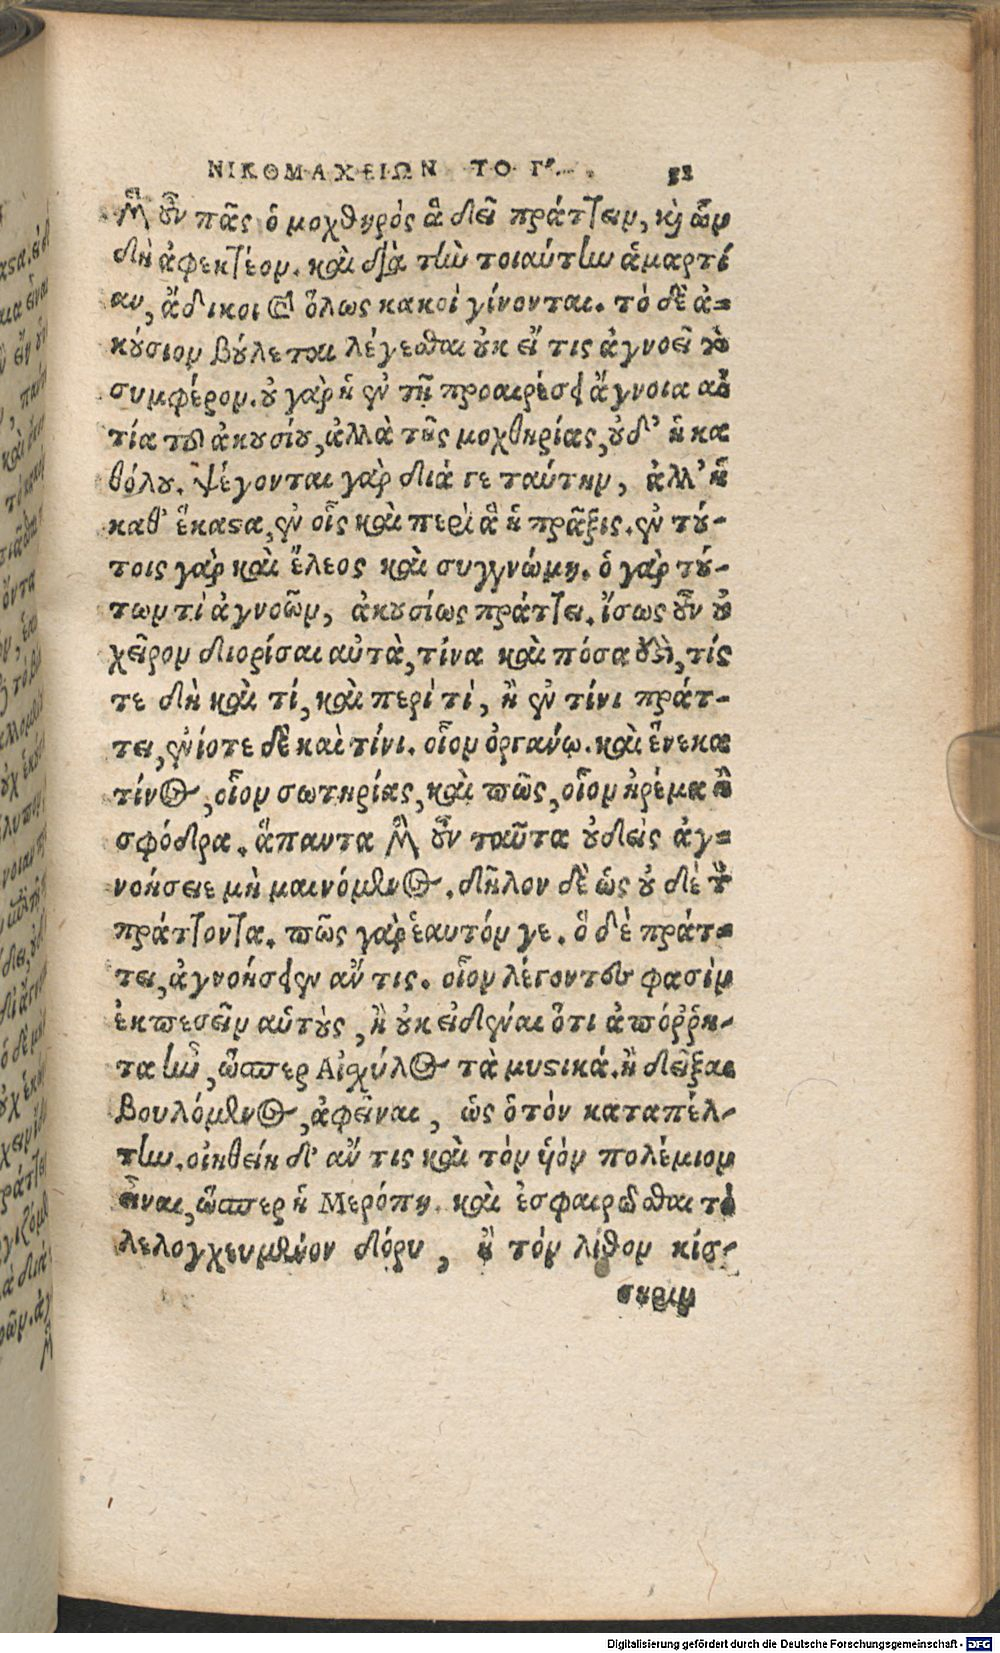 ΝΙΚΟΜΑΧΕΙΩΝ ΤΟ Γ.
μὲν οὖν πᾶς ὁ μοχθηρὸς ἃ δεῖ πράττειν, κỳ ὧν
δὴ ἀφεκτέον. καὶ διὰ τὴν τοιαύτην ἁμαρτί
αν, ἄδικοι καὶ ὅλως κακοὶ γίνονται. τὸ δὲ ἀ=
κούσιον βούλεται λέγεσθαι οὐκ εἴ τις ἀγνοεῖ τὸ
συμφέρον. οὐ γὰρ ἡ ἐν τῇ προαιρέσει ἄγνοια αἰ
τία τοῦ ἀκουσίου, ἀλλὰ τῆς μοχθηρίας, οὐδ' ἡ κα
θόλου. ψέγονται γὰρ διά γε ταύτην, ἀλλ' ἡ
καθ' ἕκαστα, ἐν οἷς καὶ περὶ ἃ ἡ πρᾶξις. ἐν τού-
τοις γὰρ καὶ ἔλεος καὶ συγγνώμη. ὁ γὰρ τού-
των τὶ ἀγνοῶν, ἀκουσίως πράττει. ἴσως οὖν οὐ
χεῖρον διορίσαι αὐτὰ, τίνα καὶ πόσα ἐστὶ, τίς
τε δὴ καὶ τί, καὶ περὶ τί, ἢ ἐν τίνι πράτ-
τει, ἐνίοτε δὲ καὶ τίνι. οἷον ὀργάνῳ. καὶ ἕνεκα
τίνος, οἷον σωτηρίας, καὶ πῶς, οἷον ἠρέμα ἢ
σφόδρα. ἅπαντα μὲν οὖν ταῦτα οὐδεὶς ἀγ=
νοήσειε μὴ μαινόμενος. δῆλον δὲ ὡς οὐδὲ τὸν
πράττοντα. πῶς γὰρ ἑαυτόν γε. ὃ δὲ πράτ=
τει, ἀγνοήσειεν ἄν τις. οἷον λέγοντες φασὶν
ἐκπεσεῖν αὑτοὺς, ἢ οὐκ εἰδέναι ὅτι ἀπόῤῥη-
τα ἦν, ὥσπερ Αἰσχύλος τὰ μυστικά. ἢ δεῖξαι
βουλόμενος, ἀφεῖναι, ὡς ὁ τὸν καταπέλ-
την. οἰηθείη δ' ἄν τις καὶ τὸν υἱὸν πολέμιον
εἶναι, ὥσπερ ἡ Μερόπη. καὶ ἐσφαιρῶσθαι τὸ
λελογχευμένον δόρυ, ἢ τὸν λίθον κίσ-
σηριν
Digitalisierung gefördert durch die Deutsche Forschungsgemeinschaft - DFG